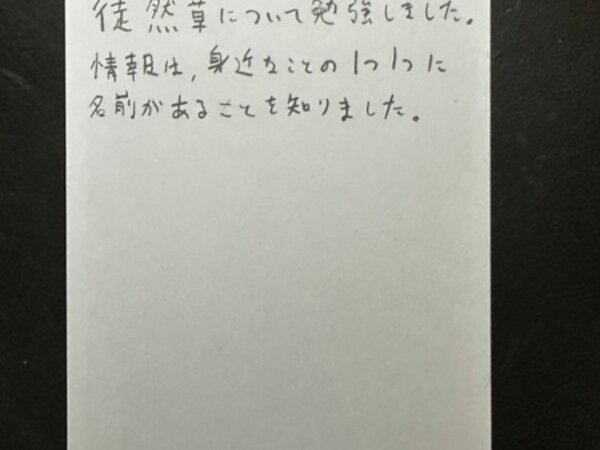 徒然草について勉強しました。
情報は,身近なことの1つ1つに
名前があることを知りました。